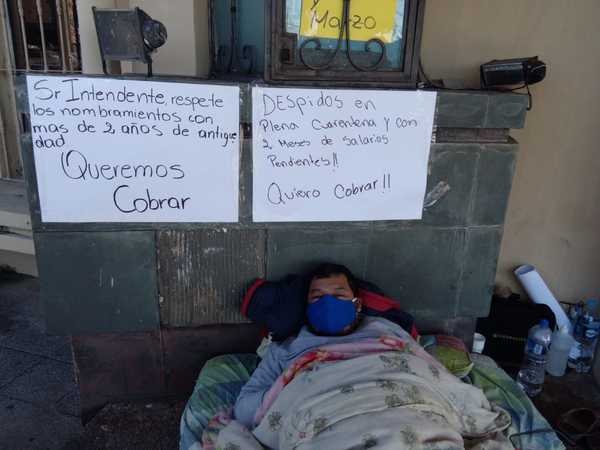 Marzo
Sr Intendente, respete
los nombramientos con
mas de 2 años de antigue
dad
¡Queremos
Cobrar
DESPIDOS EN
Plena Cuarentena y con
2 Meses de Salarios
Pendientes!!
Quiero Cobrar!!